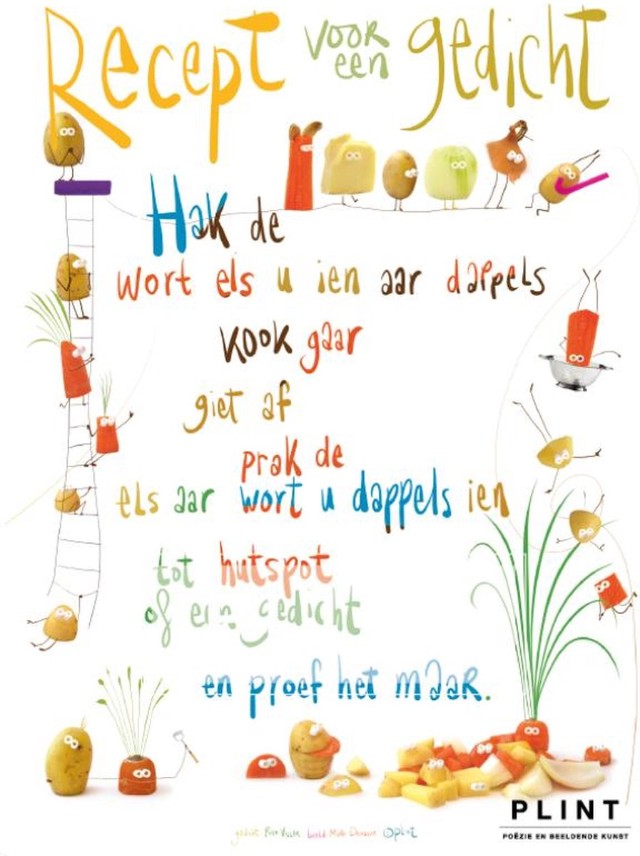 Recept voor een gedicht
Hak de
wort els u ien aar dappels
kook gaar
giet af
prak de
els aar wort u dappels ien
tot hutspot
of een gedicht
en proef het maar.
PLINT
POËZIE EN BEELDENDE KUNST